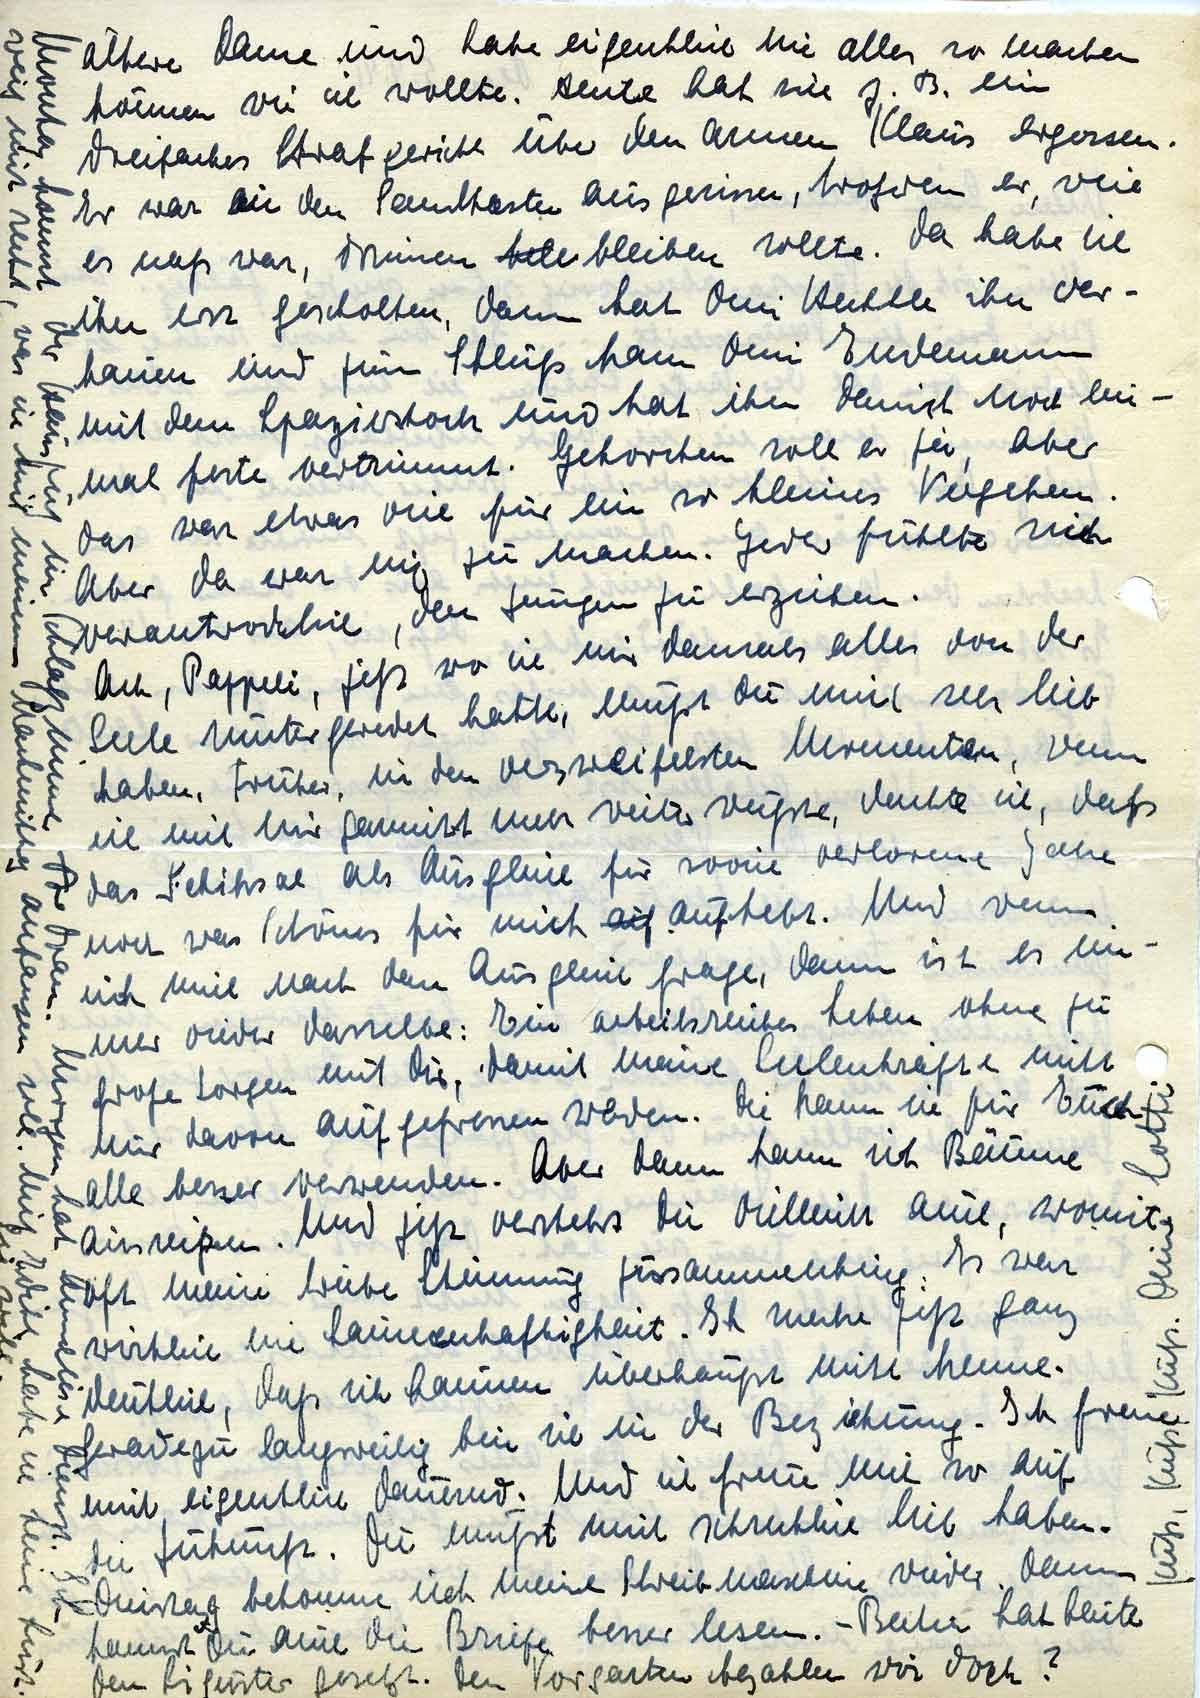 ältere Dame und habe eigentlich nie alles so machen
können wie ich wollte. Heute hat sie z. B. ein
dreifaches Strafgericht über den armen Klaus ergossen.
Er war an den Sandkasten ausgerissen, trotzdem er, weil
es naß war, drinnen bleiben sollte. Da habe ich
ihn erst gescholten, dann hat Omi ihn ver-
hauen und zum Schluß kam Omi Endemann
mit dem Spazierstock und hat ihn damit noch ein-
mal feste vertrimmt. Gehorchen soll er ja, aber
das war etwas viel für ein so kleines Vergehen.
Aber da war nix zu machen. Jeder fühlte sich
verantwortlich, den Jungen zu erziehen.
Ach, Pappeli, jetzt wo ich mir damals alles von der
Seele runtergeredet hatte, mußt Du mich sehr lieb
haben. Früher, in den verzweifelsten Momenten, wenn
ich mit mir garnicht mehr weiter wußte, dachte ich, daß
das Schicksal als Ausgleich für soviel verlorene Jahre
noch was Schönes für mich aufhebt. Und wenn
ich mich nach dem Ausgleich frage, dann ist es im-
mer wieder dasselbe: Ein arbeitsreiches Leben ohne zu
große Sorgen mit Dir, damit meine Seelenkräfte nicht
nur davon aufgefressen werden. Die kann ich für Euch
alle besser verwenden. Aber dann kann ich Bäume
ausreißen. Und jetzt verstehst Du vielleicht auch, womit
oft meine trübe Stimmung zusammenhing. Es war
wirklich nie Launenhaftigkeit. Ich merke jetzt ganz
deutlich, daß ich Launen überhaupt nicht kenne.
Geradezu langweilig bin ich in der Beziehung. Ich freue
mich eigentlich dauernd. Und ich freue mich so auf
die Zukunft. Du mußt mich schrecklich lieb haben.
Dienstag bekomme ich meine Schreibmaschine wieder. Dann
kannst Du auch die Briefe besser lesen. - hat heute
den Liguster gesetzt. Den Vorgarten bezahlen wir doch?
Kuß, Kuß, Kuß. Deine Lotti
Montag kommt der Hausputz im Schlafzimmer dran. Morgen hat Dienst. Ich
weiß nicht recht, was ich mit meinem Nachmittag anfangen soll. Nach habe ich keine Lust.